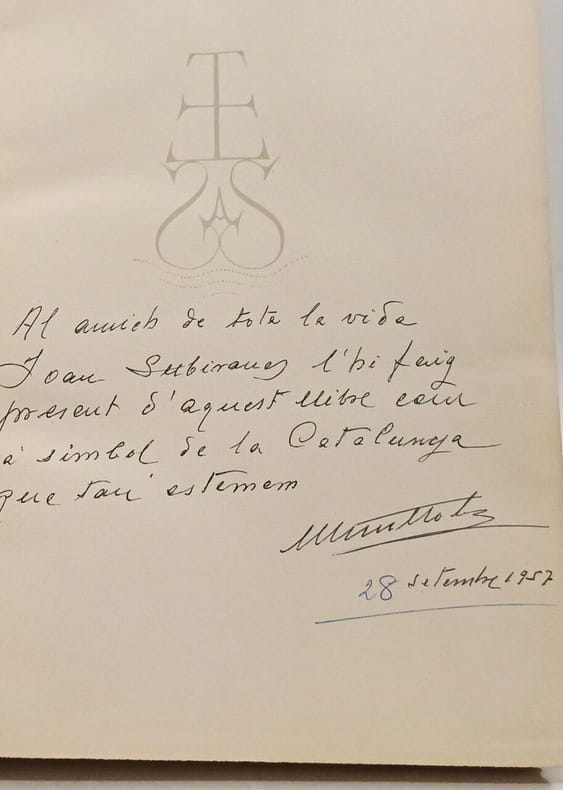 Al amich de tota la vida
Joan Subiranas l'hi faig
present d'aquest llibre com
a simbol de la Catalunya
que tan estemem
28 setembre 1957